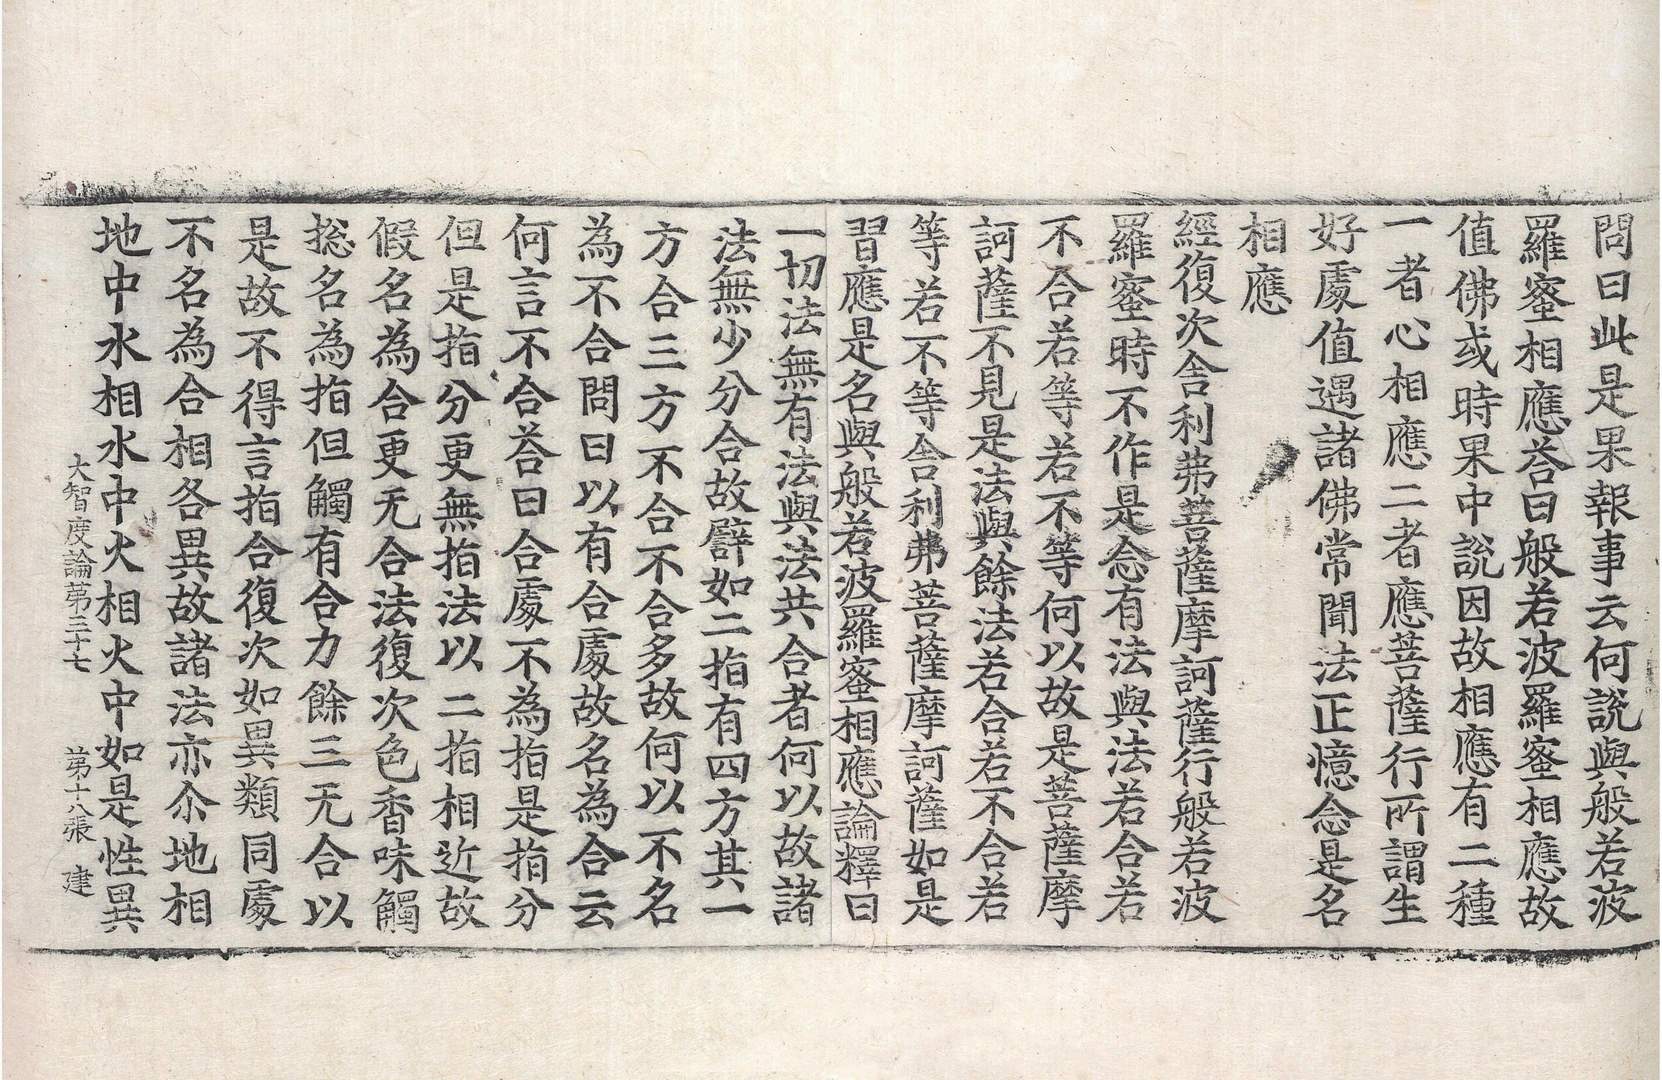 問曰此是果報事云何說與般若波
羅蜜相應荅曰般若波羅蜜相應故
值佛或時果中說因故相應有二種
一者心相應二者應菩薩行所謂生
好處值遇諸佛常聞法正憶念是名
相應
經復次舍利弗菩薩摩訶薩行般若波
羅蜜時不作是念有法與法若合若
不合若等若不等何以故是菩薩摩
訶薩不見是法與餘法若合若不合若
等若不等舍利弗菩薩摩訶薩如是
習應是名與般若波羅蜜相應論釋曰
一切法無有法與法共合者何以故諸
法無少分合故譬如二指有四方其一
方合三方不合不合多故何以不名
為不合問曰以有合處故名為合云
何言不合荅曰合處不為指是指分
但是指分更無指法以二指相近故
假名為合更无合法復次色香味觸
揔名為指但觸有合力餘三无合以
是故不得言指合復次如異類同處
不名為合相各異故諸法亦尒地相
地中水相水中火相火中如是性異
大智度論第三十七 第十八張 建